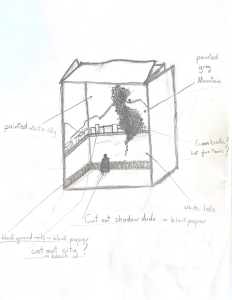 painted
grey
Mountain
painted white sky
Foam balls?
hot glue
white lake
Cut out shadow dude in black paper
black ground in black paper
cut out city?
in black